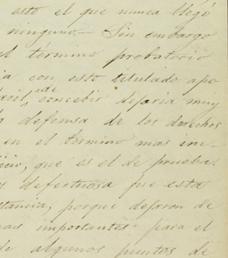 esto el que nunca llegó
ninguno — Sin embargo
el término probatorio
ia con esto titulado apo
facil de concebir dejaria muy
la defensa de los derechos
en el termino mas im-
que es el de pruebas
s defectuosa que esta
stancia, porque dejaron de
mas importantes para el
de algunos puntos de